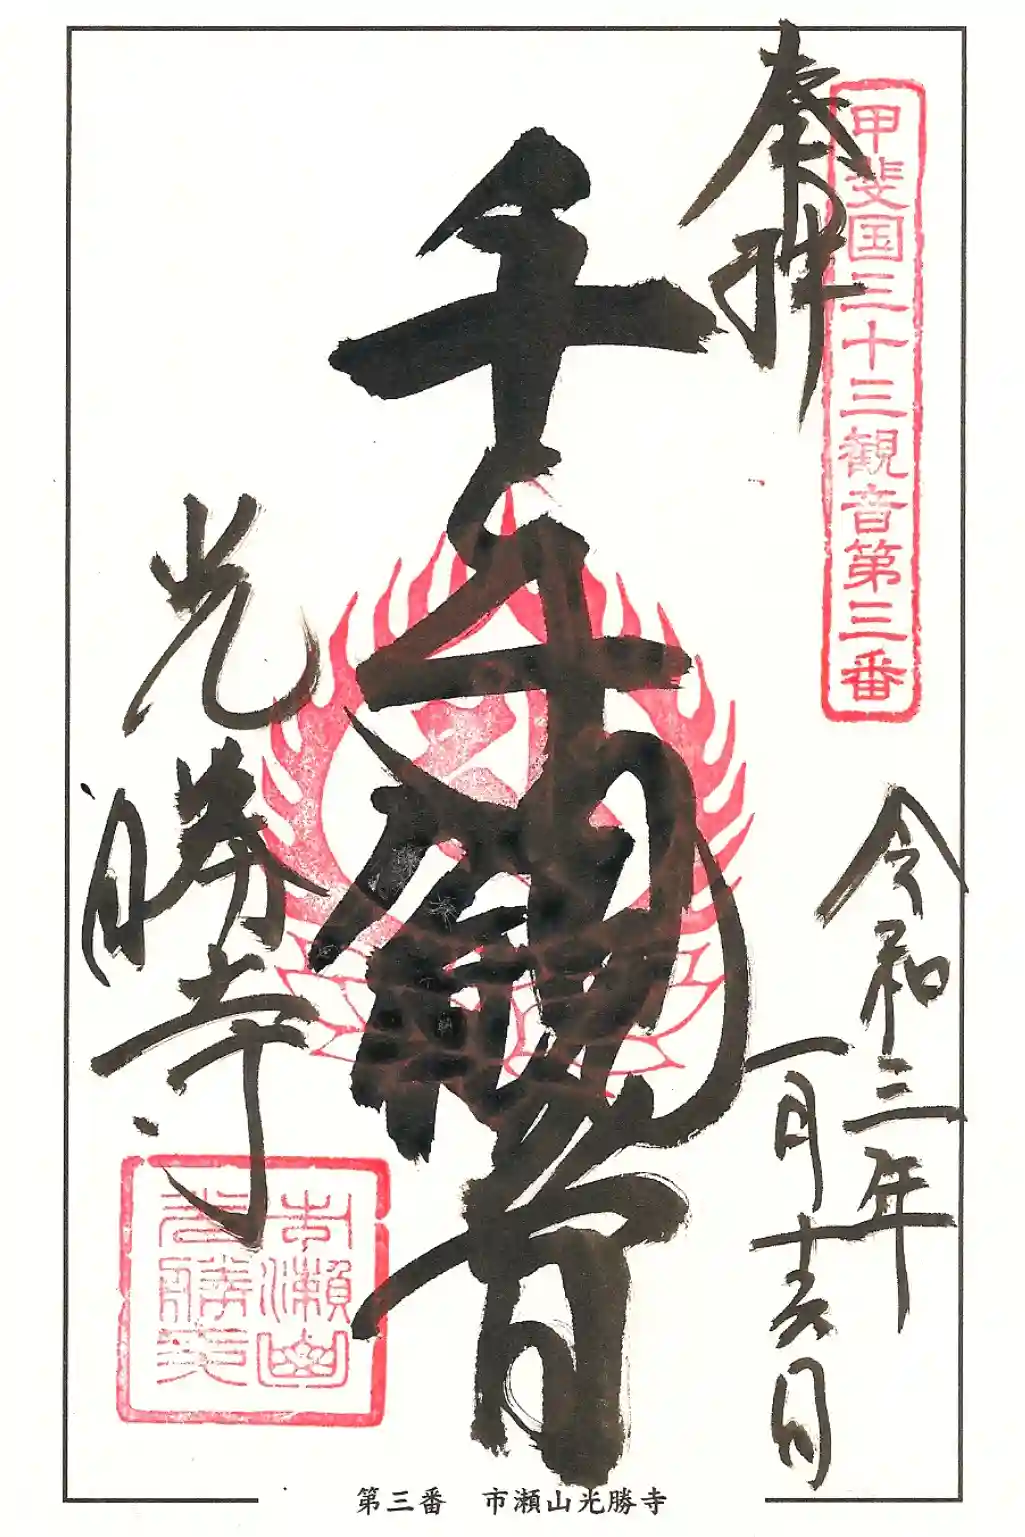 甲斐国三十三観音第三番
奉拝
令和三年
一月十六日
千手観音
光勝寺
市瀬山
光勝寺
第三番　市瀬山光勝寺